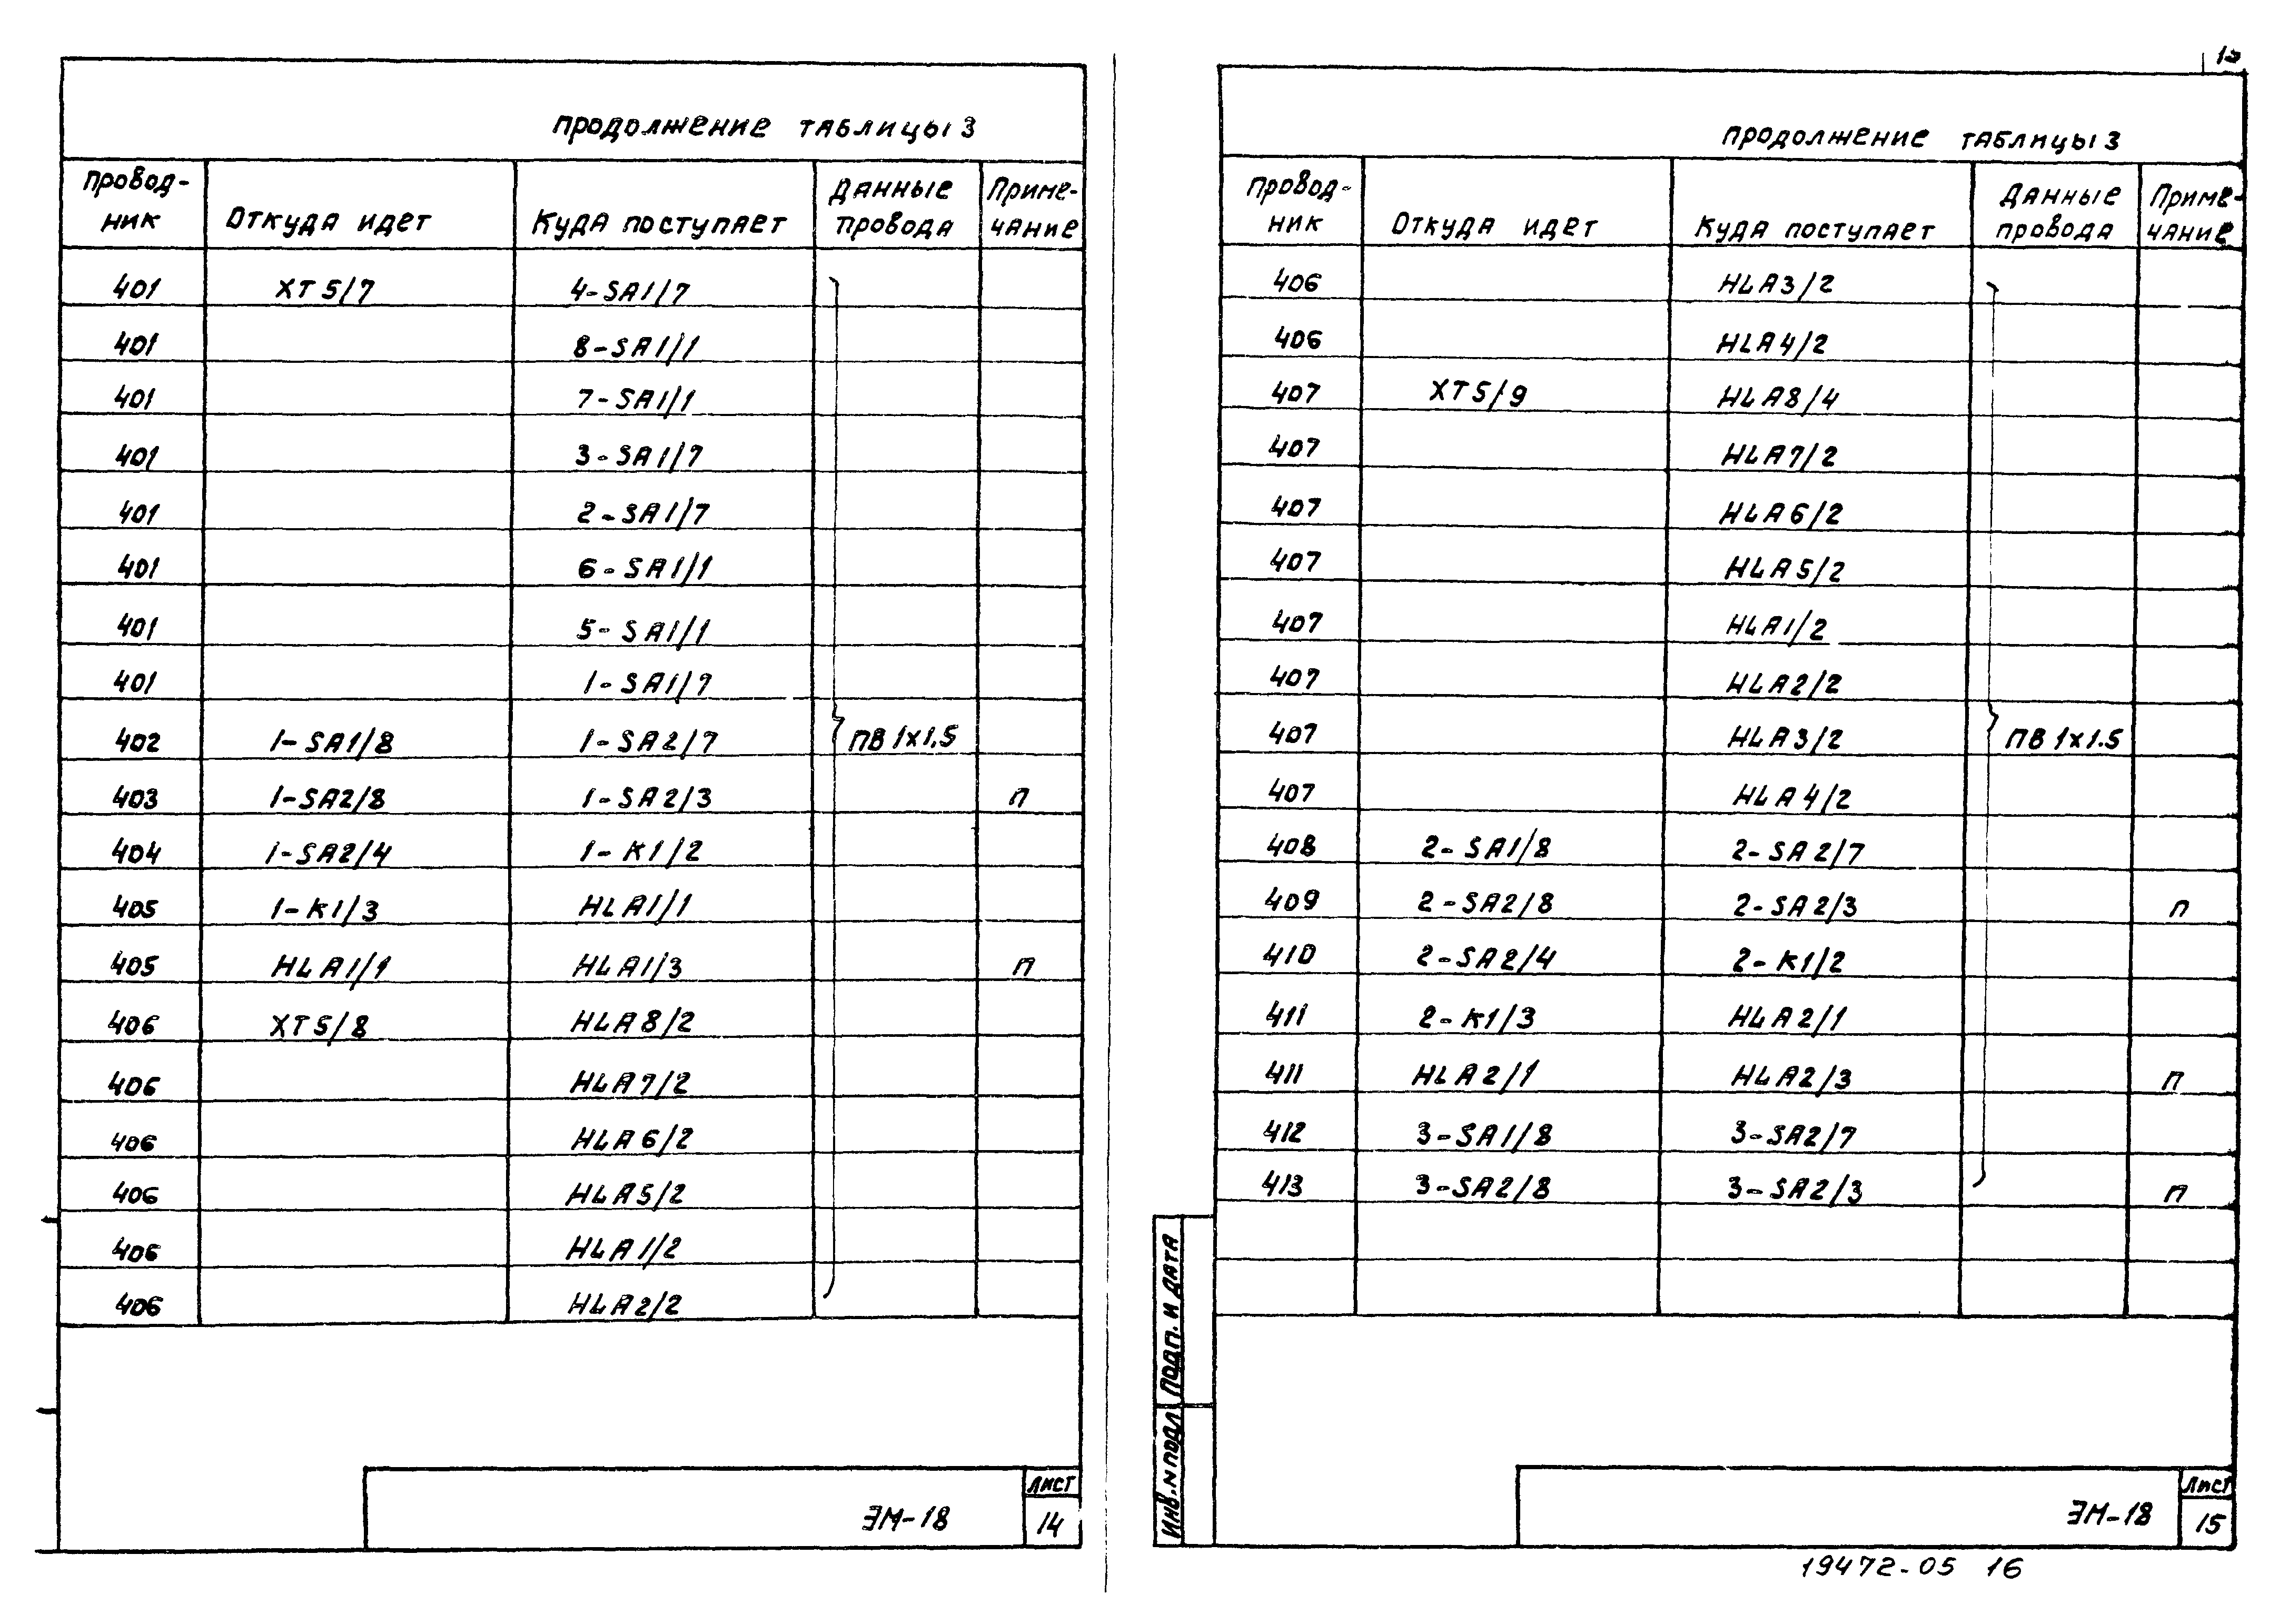 Продолжение таблицы 3
Провод-ник Откуда идет Куда поступает Данные провода Приме-чание
401 XT5/7 4-SA1/7
401 8-SA1/1
401 7-SA1/1
401 3-SA1/7
401 2-SA1/7
401 6-SA1/1
401 5-SA1/1
401 1-SA1/7
402 1-SA1/8 1-SA2/7 ПВ 1х1,5
403 1-SA2/8 1-SA2/3 П
404 1-SA2/4 1-K1/2
405 1-K1/3 HLA1/1
405 HLA1/1 HLA1/3 П
406 XT5/8 HLA8/2
406 HLA7/2
406 HLA6/2
406 HLA5/2
406 HLA1/2
406 HLA2/2
ЭМ-18
Лист
14
Продолжение таблицы 3
Провод-ник Откуда идет Куда поступает Данные провода Приме-чание
406 HLA3/2
406 HLA4/2
407 XT5/9 HLA8/4
407 HLA7/2
407 HLA6/2
407 HLA5/2
407 HLA1/2
407 HLA2/2
407 HLA3/2 ПВ 1х1.5
407 HLA4/2
408 2-SA1/8 2-SA2/7
409 2-SA2/8 2-SA2/3 П
410 2-SA2/4 2-K1/2
411 2-K1/3 HLA2/1
411 HLA2/1 HLA2/3 П
412 3-SA1/8 3-SA2/7
413 3-SA2/8 3-SA2/3 П
Подп. и дата
Инв. N подл
ЭМ-18
Лист
15
19472-05 16